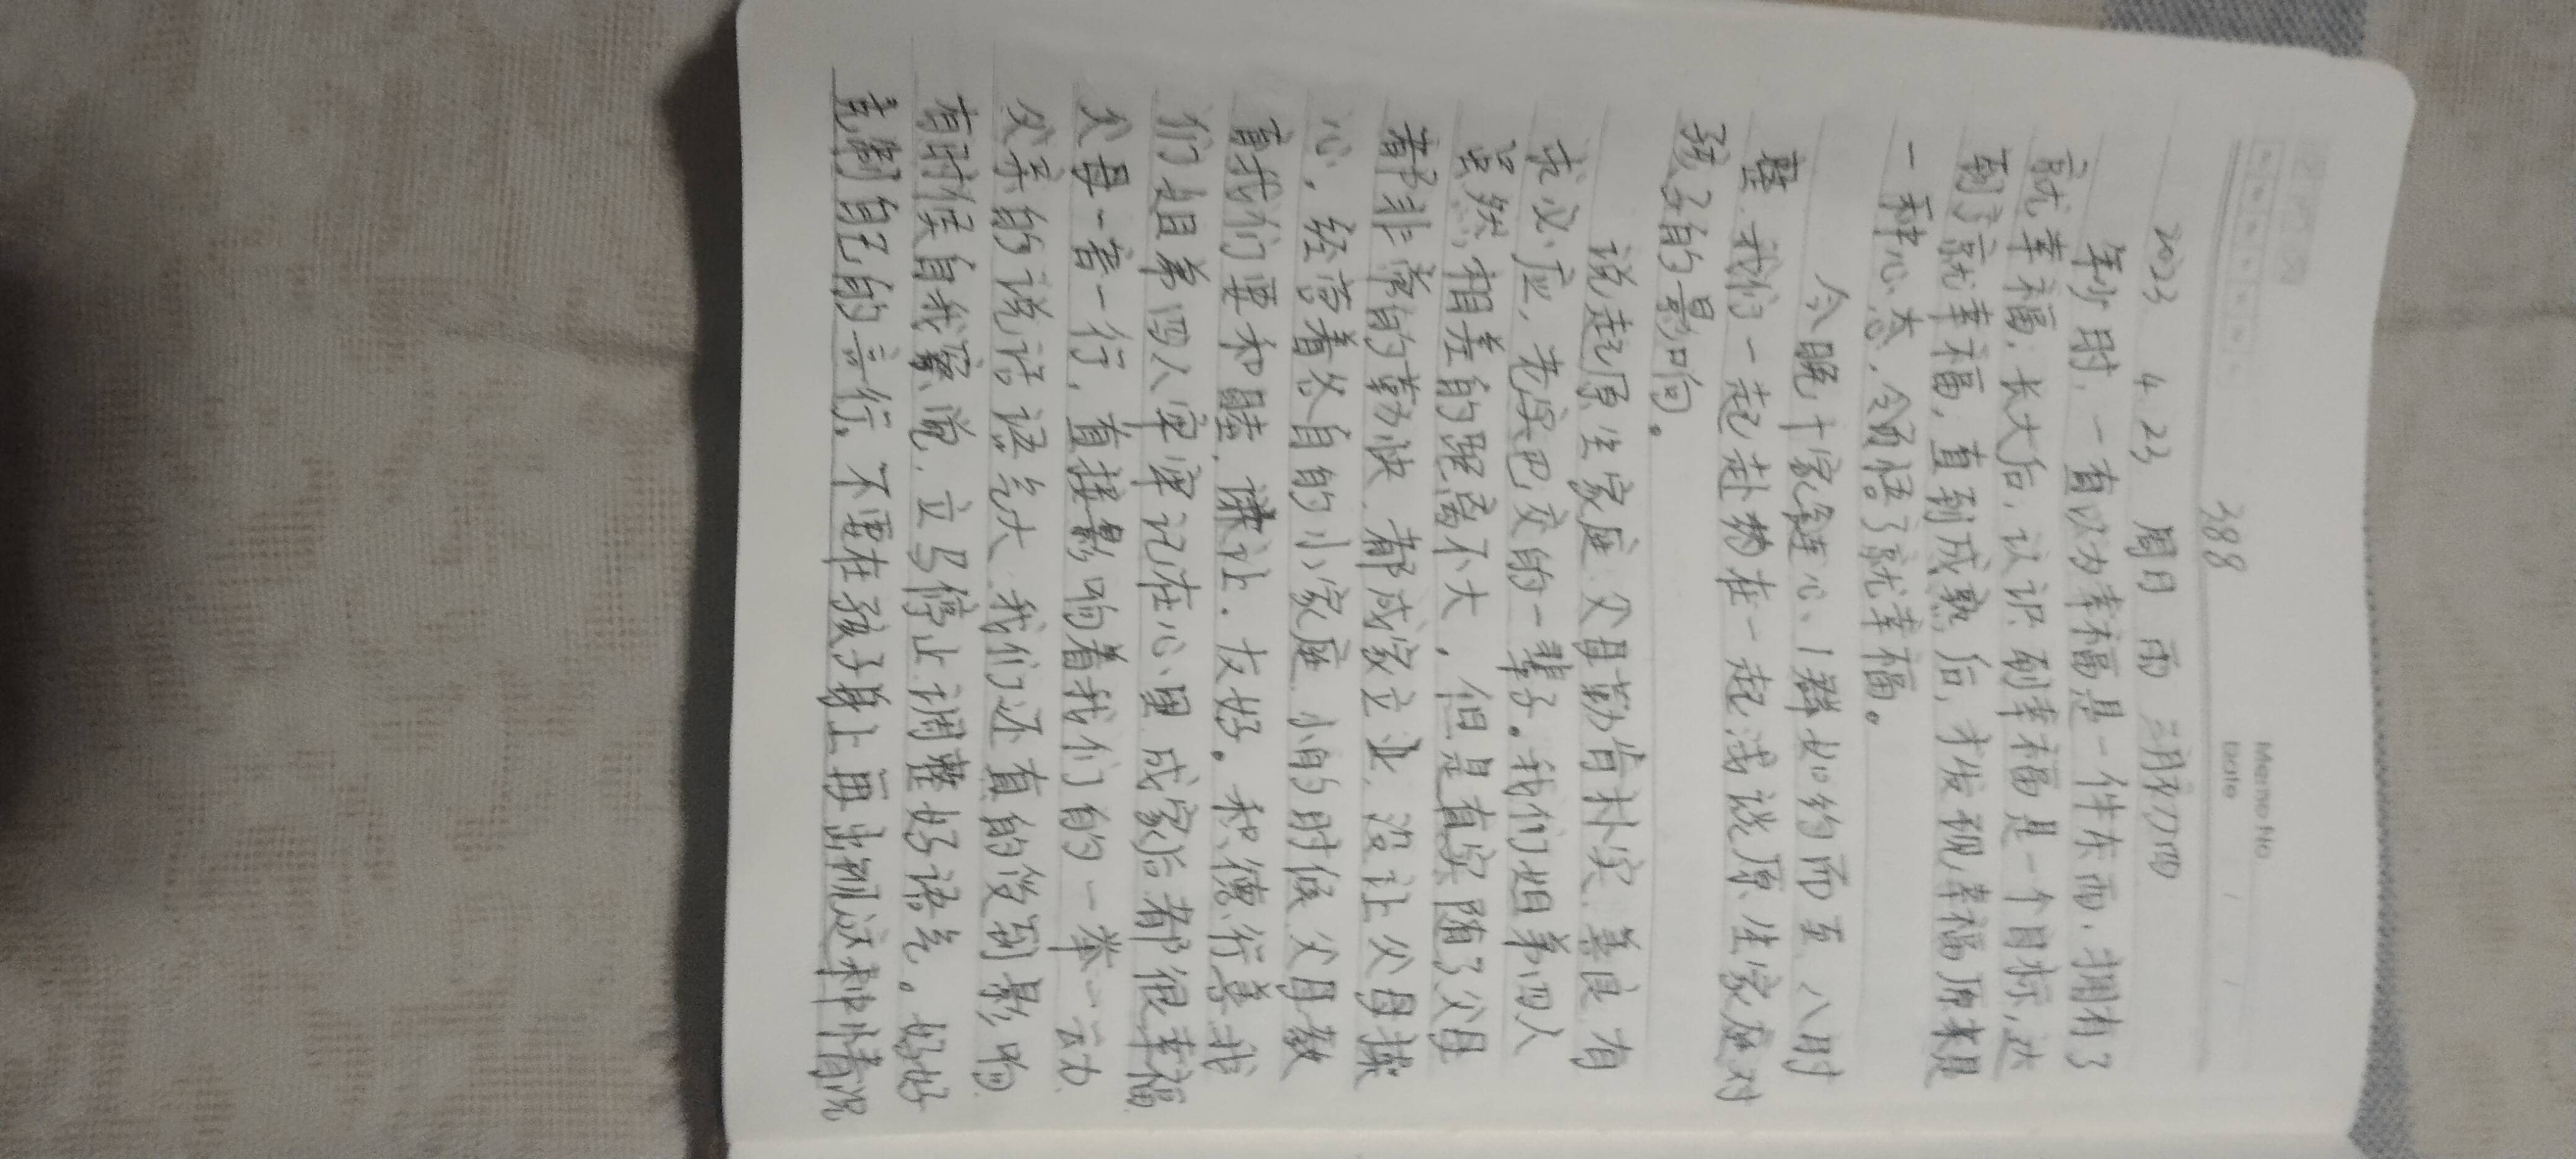 Memo No
Date
388
2023 4.23 周日 雨 三月初四
年少时，一直以为幸福是一件东西，拥有了
就幸福；长大后，认识到幸福是一个目标，达
到了就幸福，直到成熟后，才发现幸福原来是
一种心态，领悟了就幸福。
今晚十家连心、1群如约而至，八时
整，我们一起赴约在一起浅谈原生家庭对
孩子的影响。
说起原生家庭，父母勤肯朴实，善良，有
求必应，老实巴交的一辈子。我们姐弟四人
虽然相差的距离不大，但是真实随了父母
都非常的勤快，都成家立业，没让父母操
心，经营着各自的小家庭，小的时候父母教
育我们要和睦，谦让，友好。积德行善，我
们姐弟四人牢牢记在心里，成家后都很幸福
父母一言一行，直接影响着我们的一举一动
父亲的说话语气大，我们还真的受到影响
有时候自我察觉，立马停止调整好语气。好好
克制自己的言行，不要在孩子身上再出现这种情况